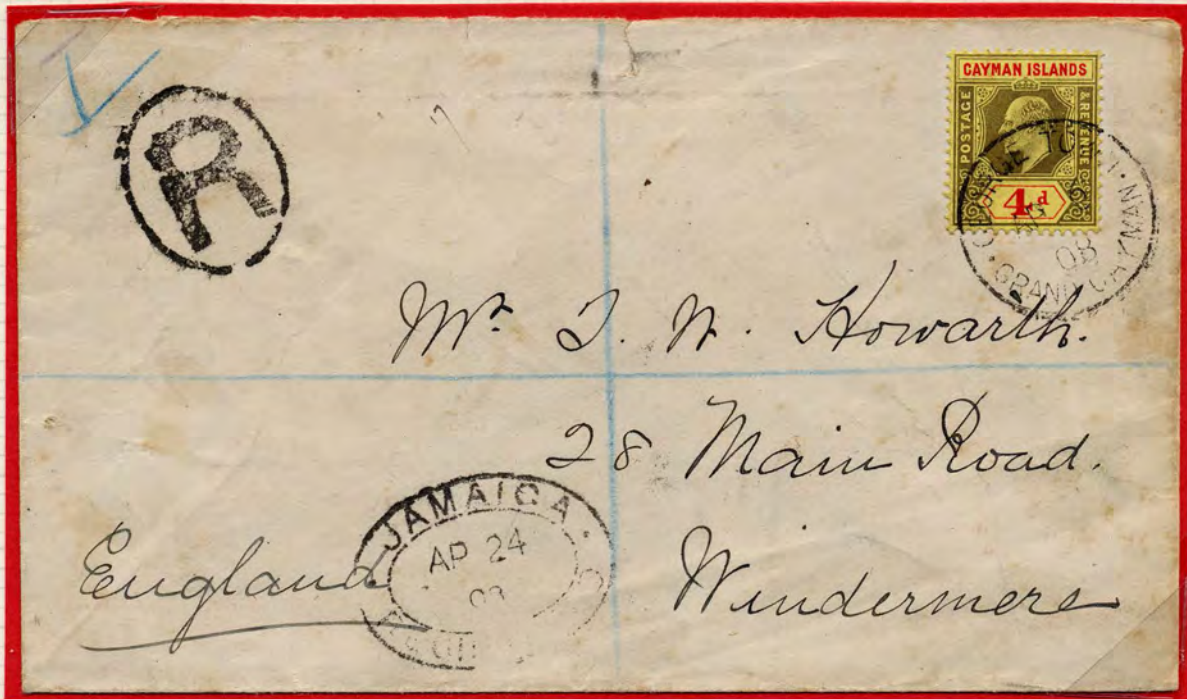 R
CAYMAN ISLANDS
POSTAGE & REVENUE
4d
GEORGE TOWN
08
GRAND CAYMAN
Mr. J. W. Howarth.
28 Main Road.
Windermere
England
JAMAICA
AP 24
08